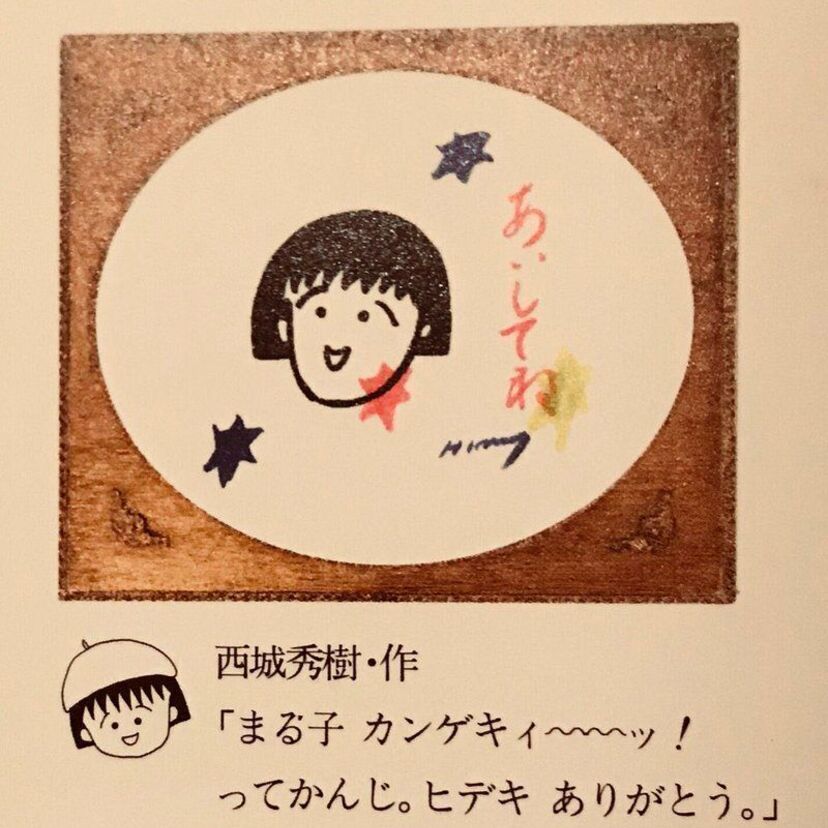 あいしてね
西城秀樹・作
「まる子 カンゲキィ〜〜〜ッ!
ってかんじ。ヒデキ ありがとう。」